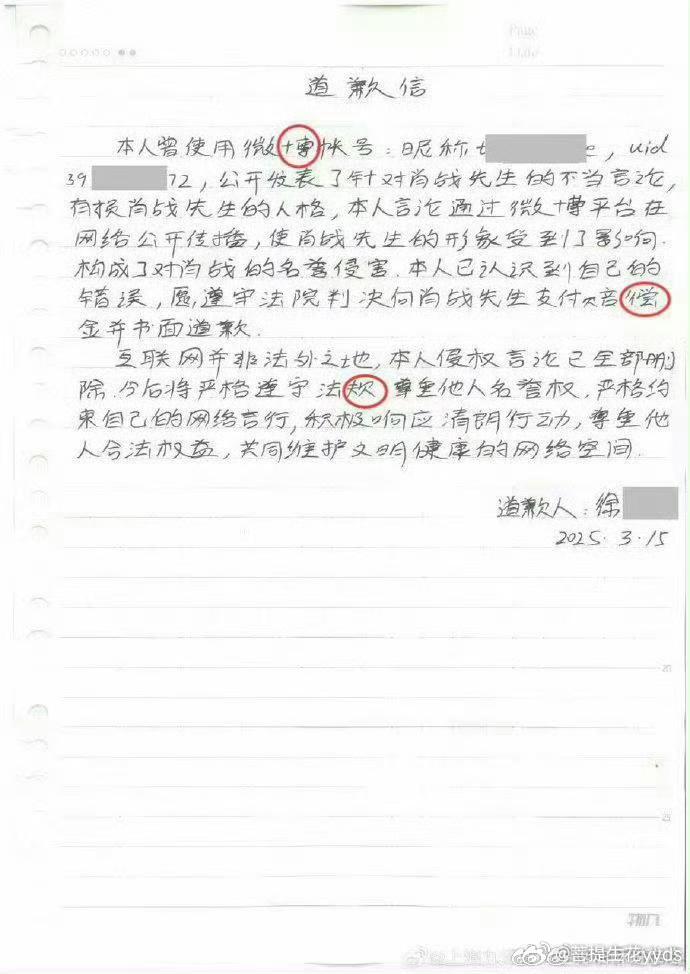 道歉信
本人曾使用微博帐号：昵称t e，uid
39 72，公开发表了针对肖战先生的不当言论，
有损肖战先生的人格，本人言论通过微博平台在
网络公开传播，使肖战先生的形象受到了影响.
构成了对肖战的名誉侵害.本人已认识到自己的
错误，愿遵守法院判决向肖战先生支付赔偿
金并书面道歉.
互联网并非法外之地，本人侵权言论已全部删
除.今后将严格遵守法规 尊重他人名誉权，严格约
束自己的网络言行，积极响应清朗行动，尊重他
人合法权益，共同维护文明健康的网络空间.
道歉人：徐
2025.3.15
20
25
@菩提生花yyds